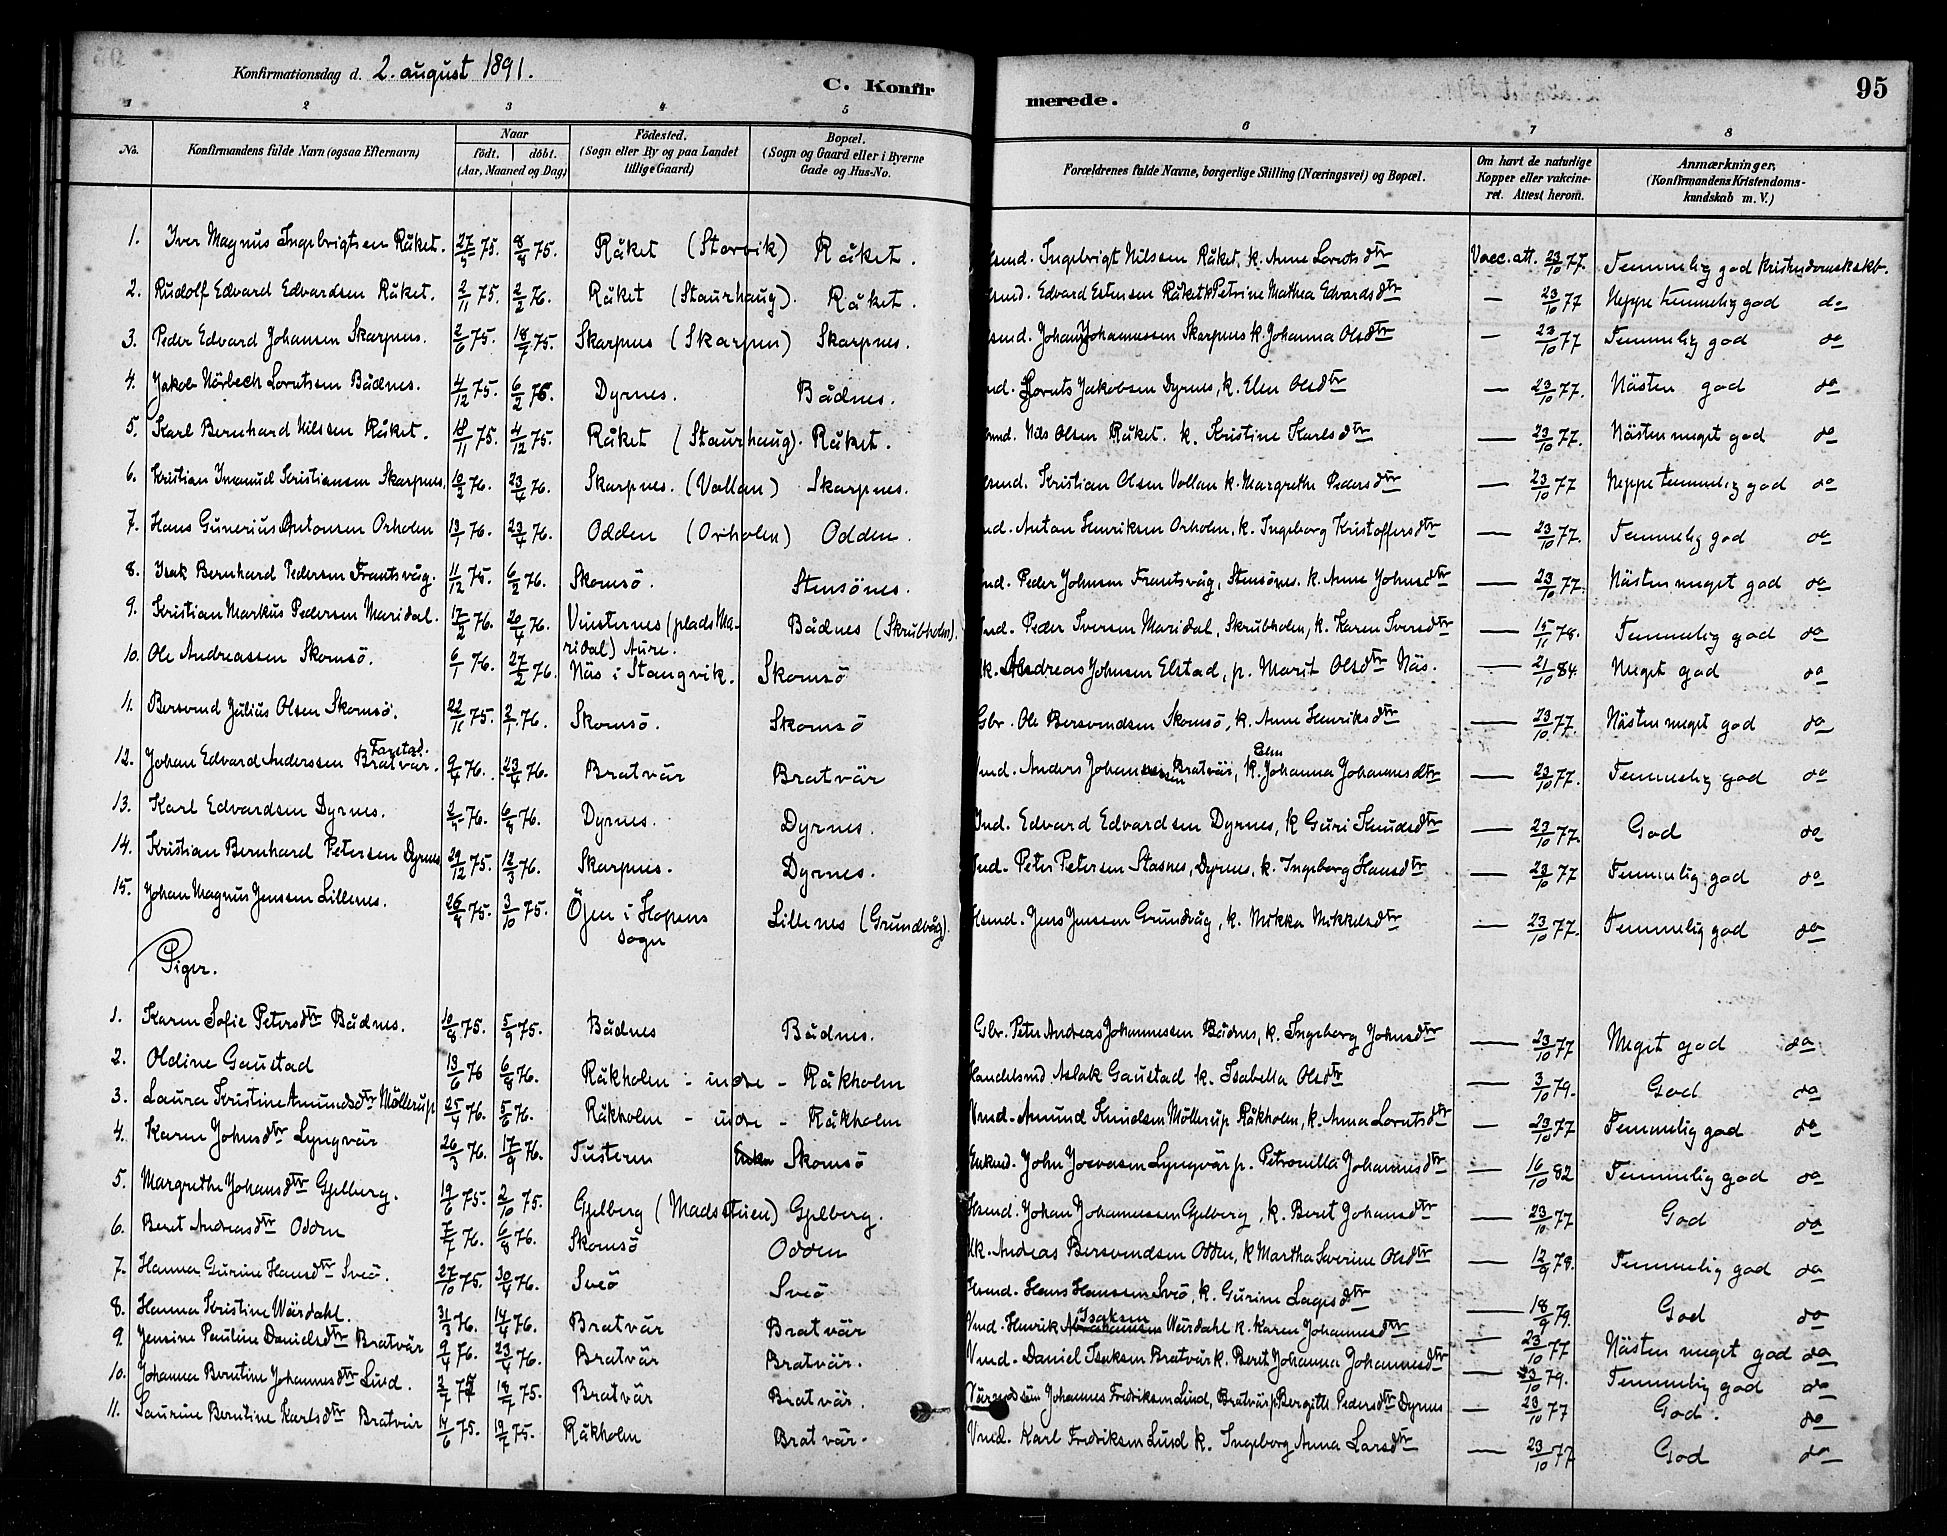 Konfirmationsdag d. 2. august 1891.
C. Konfirmerede.
95
1 2 3 4 5 6 7 8
No. Konfirmandens fulde Navn (ogsaa Efternavn) Naar födt. döbt. (Aar, Maaned og Dag) Födested. (Sogn eller By og paa Landet tillige Gaard) Bopæl. (Sogn og Gaard eller i Byerne Gade og Hus-No. Forældrenes fulde Navne, borgerlige Stilling (Næringsvei) og Bopæl. Om havt de naturlige Kopper eller vakcineret. Attest herom. Anmærkninger, (Konfirmandens Kristendomskundskab m. V.)
1. Iver Magnus Ingebrigtsen Råket. 27/5 75. 8/8 75. Råket (Storvik) Råket. Ingebrigt Nilssen Råket, k. Anne Lorutsdtr Vacc. att. 23/10 77. Temmelig god Kristendomskskb.
2. Rudolf Edvard Edvardsen Råket. 2/11 75. 2/2 76. Råket (Staurhaug). Råket. Edvard Estensen Råket k Petrine Mathea Edvardsdtr — 23/10 77 Neppe temmelig god do
3. Peder Edvard Johansen Skarpnes. 2/6 75. 18/7 75. Skarpnes (Skarpnes) Skarpnes. Johan Johannessen Skarpnes k. Johanna Olsdtr — 23/10 77 Temmelig god do
4. Jakob Nörbech Lorutsen Bådnes. 4/12 75. 6/2 76. Dyrnes. Bådnes. Loruts Jakobsen Dyrnes, k. Elen Olsdtr — 23/10 77. Nästen god do
5. Karl Bernhard Nilssen Råket. 18/11 75. 4/12 75. Råket (Staurhaug). Råket. Nils Olsen Råket. k. Kristine Karlsdtr — 23/10 77. Nästen meget god do
6. Kristian Imanuel Kristiansen Skarpnes. 10/2 76. 23/4 76. Skarpnes. (Vollan) Skarpnes. Kristian Olsen Vollan k. Margrethe Pedersdtr — 23/10 77 Neppe temmelig god do
7. Hans Gunerius Antonsen Orholm 13/1 76. 23/4 76. Odden (Orholm) Odden. Anton Henriksen Orholm, k. Ingeborg Kristoffersdtr — 23/10 77. Temmelig god do
8. Isak Bernhard Pedersen Frantsvåg. 11/12 75. 6/2 76. Skomsö. Stensönes. Peder Johnsen Frantsvåg, Stensönes. k. Anne Johnsdtr — 23/10 77. Nästen meget god do
9. Kristian Markus Pedersen Maridal. 17/2 76. 20/4 76. Vinsternes (plads Maridal) Aure. Bådnes (Skrubholm). Peder Iversen Maridal, Skrubholm, k. Karen Iversdtr — 15/11 78. Temmelig god do
10. Ole Andreassen Skomsö. 6/1 76. 27/2 76. Näs i Stangvik. Skomsö Andreas Johnsen Elstad, p. Marit Olsdtr Näs. — 21/10 84. Meget god do
11. Bersvend Julius Olsen Skomsö. 22/11 75. 2/1 76. Skomsö. Skomsö Gbr. Ole Bersvendsen Skomsö, k. Anne Henriksdtr — 23/10 77. Nästen meget god do
12. Johan Edvard Anderssen Bratvär. 9/4 76. 23/4 76. Bratvär Bratvär Anders Johansen Bratvär, k. Elen Johanna Johannesdtr — 23/10 77. Temmelig god do
13. Karl Edvardsen Dyrnes. 76. 6/8 76. Dyrnes. Dyrnes. Ind. Edvard Edvardsen Dyrnes, k Guri Knudsdtr — 23/10 77. God do
14. Kristian Bernhard Petersen Dyrnes 29/12 75. 12/3 76. Skarpnes. Dyrnes. Ind. Peter Petersen Stasnes, Dyrnes, k. Ingeborg Hansdtr — 23/10 77 Temmelig god do
15. Johan Magnus Jenssen Lillenes. 26/8 75. 3/10 75. Öjen i Hopens sogn Lillenes (Grundvåg). Jens Jenssen Grundvåg, k. Mikka Mikkelsdtr — 23/10 77. Temmelig god do
Piger.
1. Karen Sofie Petersdtr Bådnes. 10/8 75. 5/9 75. Bådnes Bådnes. Gbr. Peter Andreas Johannessen Bådnes, k. Ingeborg Johnsdtr — 23/10 77 Meget god do
2. Oldine Gaustad 13/6 76 6/8 76. Råkholm - indre - Råkholm Handelsmd Aslak Gaustad k. Isabella Olsdtr — 3/10 79. God do
3. Laura Kristine Amundsdtr Möllerup 25/4 76. 5/6 76. Råkholm - indre - Råkholm Amund Knudsen Möllerup Råkholm, k. Anna Lorutsdtr — 23/10 77 Temmelig god do
4. Karen Johnsdtr Lyngvär 26/3 76. 17/9 76. Tustern Skomsö John Lyngvär p. Petronilla Johannesdtr — 16/10 82 Temmelig god do
5. Margrethe Johansdtr Gjelberg. 19/6 75. 2/10 75. Gjelberg (Madsstuen) Gjelberg. Johan Johannessen Gjelberg, k. Beret Johansdtr — 23/10 77 God do
6. Beret Andreasdtr Odden 7/7 76. 6/8 76. Skomsö Odden Andreas Bersvendsen Odden, k Martha Severine Olsdtr — 12/9 78. Temmelig god do
7. Hanna Gurine Hansdtr Sveö. 27/10 75. 30/4 76. Sveö Sveö Hans Hanssen Sveö, k. Gurine Lagesdtr — 18/9 79. God do
8. Hanna Kristine Wärdahl. 31/3 76. 14/4 76. Bratvär Bratvär Henrik Isaksen Wärdahl k. Karen Johannesdtr — 23/10 77 Nästen meget god do
9. Jensine Pauline Danielsdtr Bratvär 9/4 76. 23/4 76. Bratvär Bratvär. Daniel Isaksen Bratvär k. Berit Johanna Johannesdtr — 23/10 79. Temmelig god do
10. Johanna Berntine Johannesdtr Lund. 2/7 75 18/7 75. Bratvär Bratvär. Johannes Fredriksen Lund, Bratvär p. Bergitte Pedersdtr Dyrnes — 23/10 77 God. do
11. Laurine Berntine Karlsdtr Bratvär 14/6 75. 19/7 75. Råkholm Bratvär. Karl Fredriksen Lund k. Ingeborg Anna Larsdtr — 23/10 77 God do